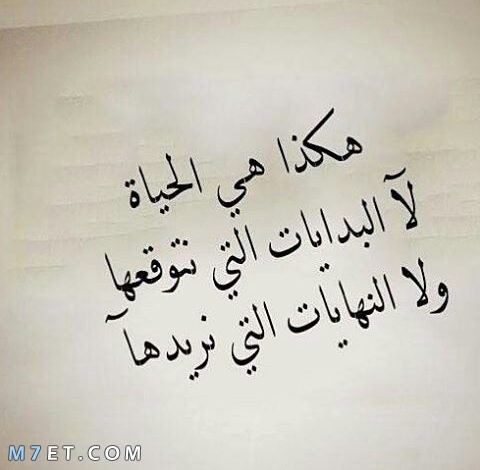 هكذا هي الحياة
لآ البدايات التي نتوقعها
ولا النهايات التي نريدهآ
M7ET.COM